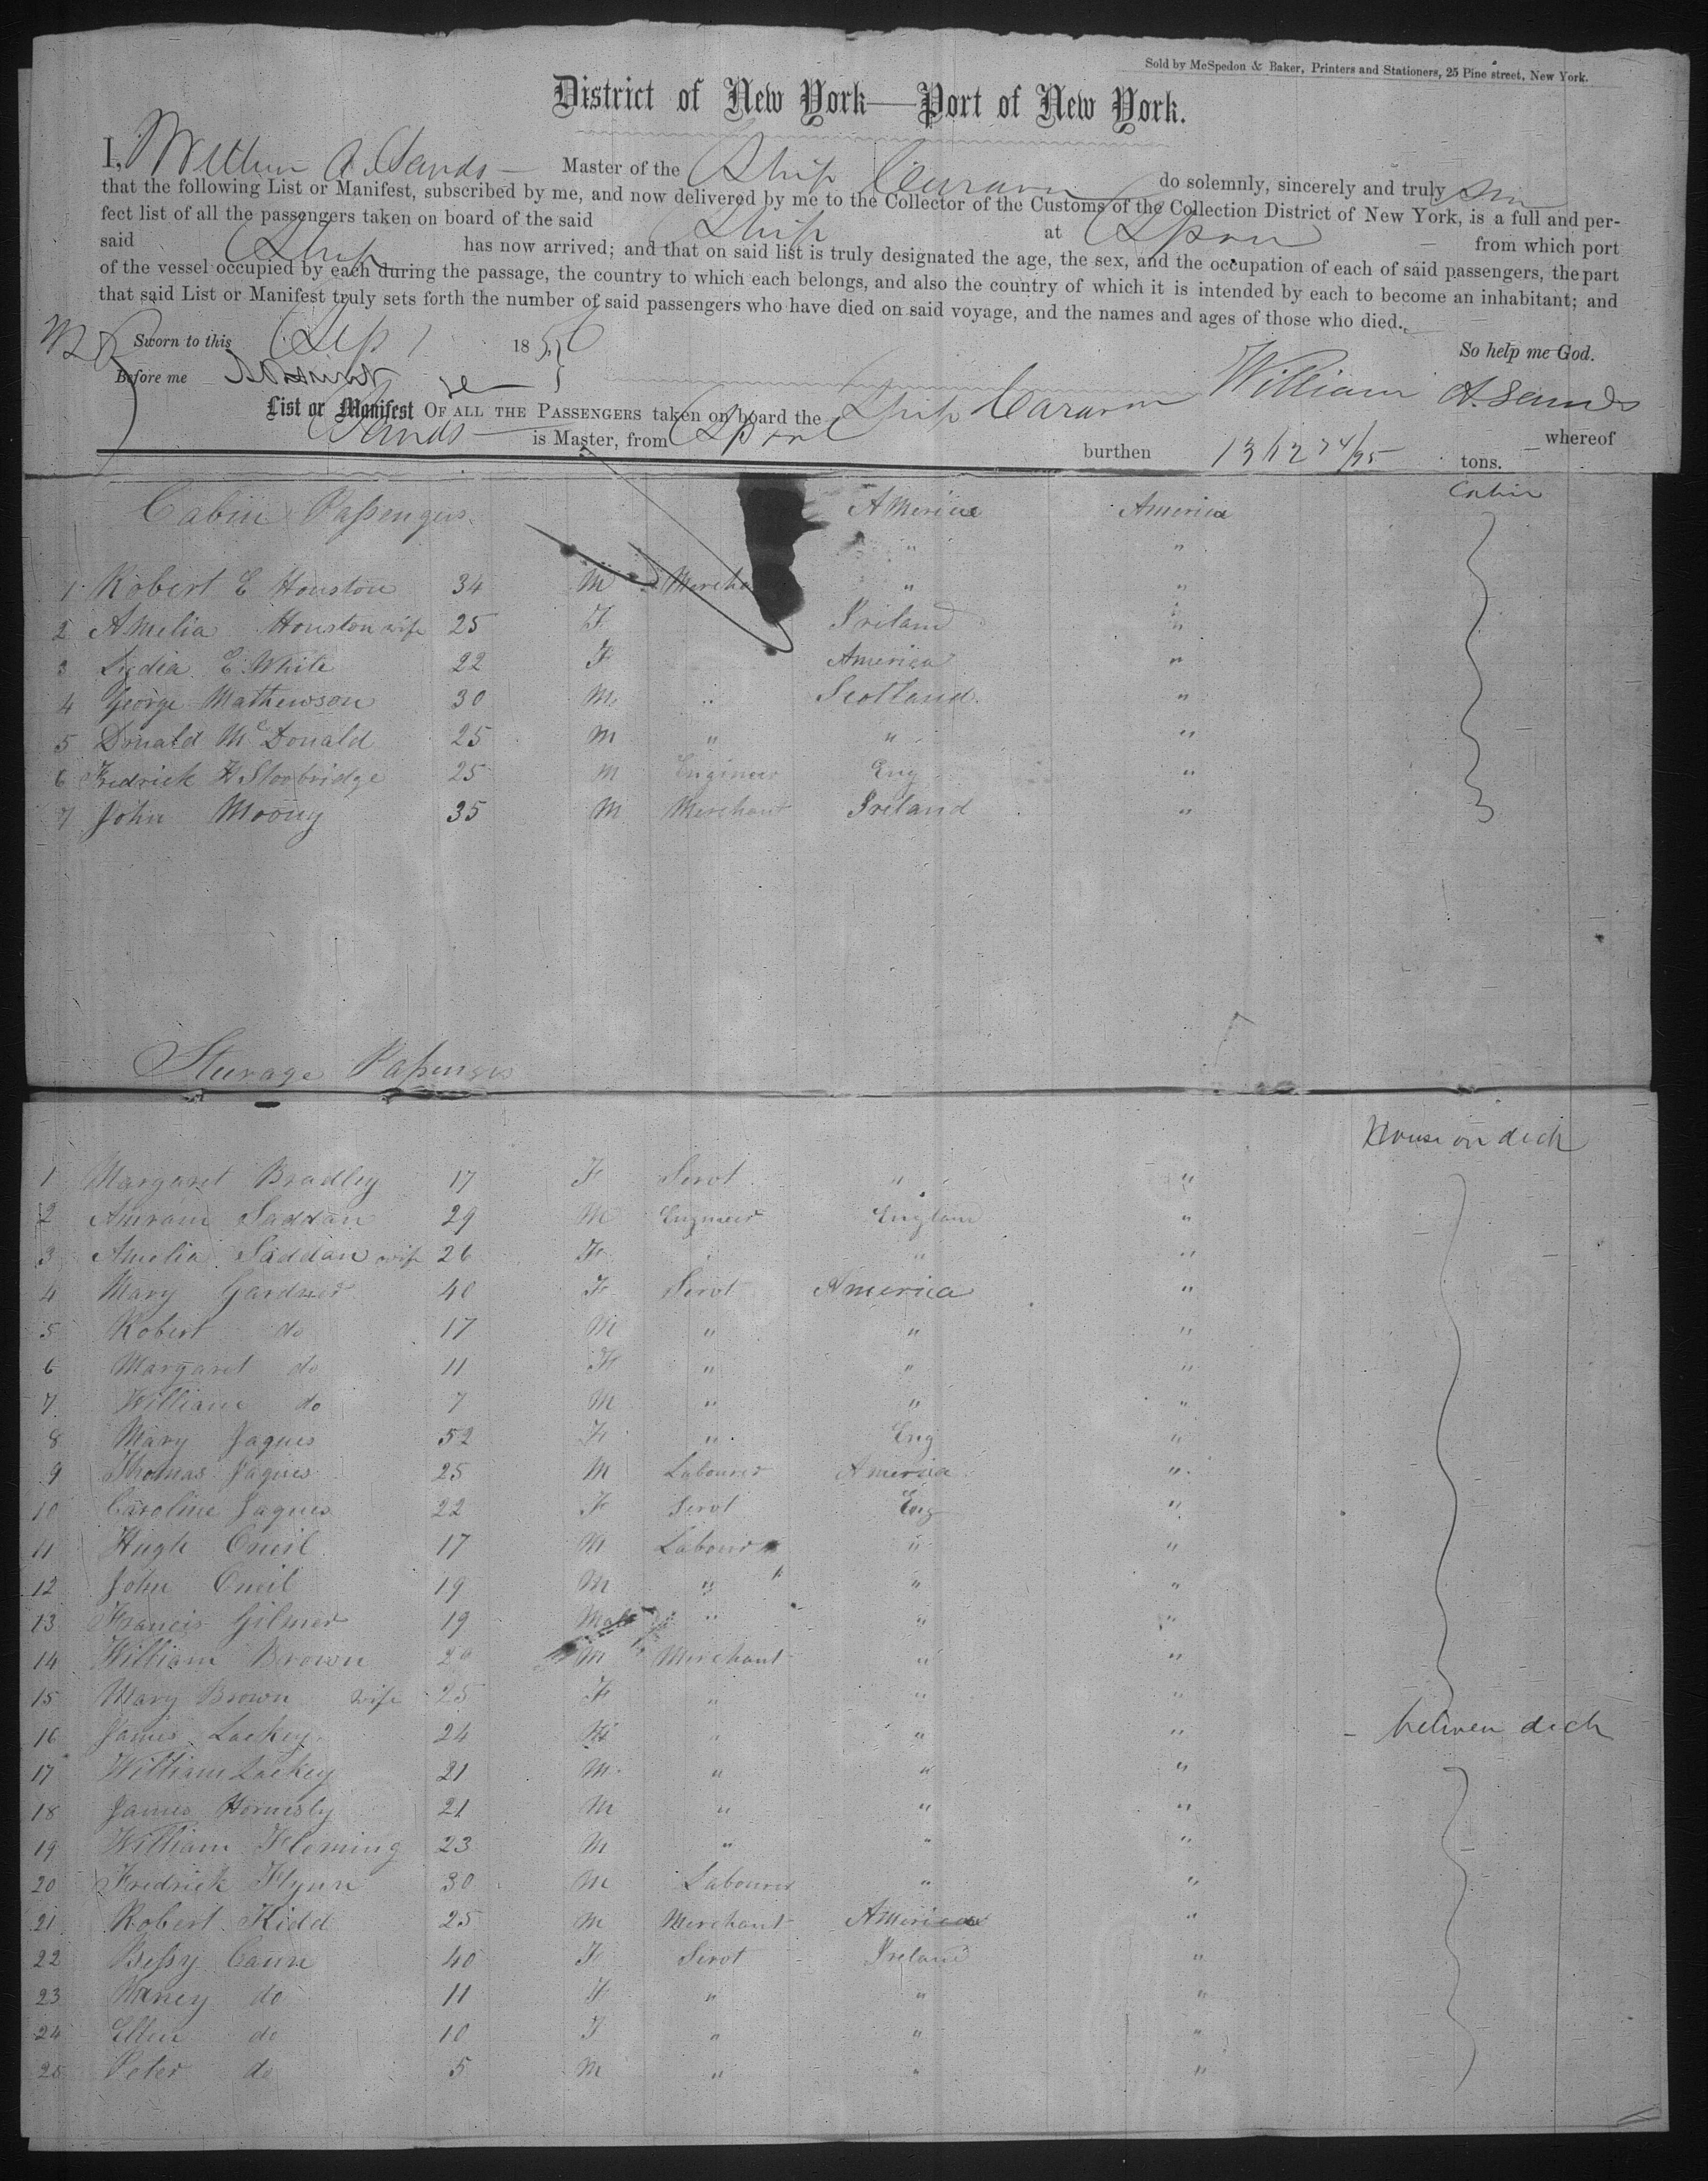 Sold by McSpedon & Baker, Printers and Stationers, 25 Pine street, New York.
District of New York—Port of New York.
I, William A. Sands — Master of the Ship Caravan do solemnly, sincerely and truly
that the following List or Manifest, subscribed by me, and now delivered by me to the Collector of the Customs of the Collection District of New York, is a full and per-
fect list of all the passengers taken on board of the said Ship at from which port
said Ship has now arrived; and that on said list is truly designated the age, the sex, and the occupation of each of said passengers, the part
of the vessel occupied by each during the passage, the country to which each belongs, and also the country of which it is intended by each to become an inhabitant; and
that said List or Manifest truly sets forth the number of said passengers who have died on said voyage, and the names and ages of those who died.
Sworn to this Sep 1 1856 So help me God.
Before me William A. Sands
List or Manifest OF ALL THE PASSENGERS taken on board the Ship Caravan whereof
Sands is Master, from burthen 1362 74/95 tons.
Cabin Passengers America America Cabin
" "
1 Robert E Houston 34 M Mercha " "
2 Amelia Houston wife 25 F Ireland "
3 Lydia E. White 22 F America "
4 George Mathewson 30 M " Scotland "
5 Donald McDonald 25 M " " "
6 Fredrick H Stoobridge 25 M Engineer Eng "
7 John Moony 35 M Merchant Ireland "
Steerage Passengers
House on deck
1 Margaret Bradley 17 F Servt " "
2 Amram Saddan 29 M Engineer England "
3 Amelia Saddan wife 26 F " " "
4 Mary Gardner 40 F Servt America "
5 Robert do 17 M " " "
6 Margaret do 11 F " " "
7 William do 7 M " " "
8 Mary Jaques 52 F " Eng "
9 Thomas Jaques 25 M Labourer America "
10 Caroline Jaques 22 F Servt Eng "
11 Hugh Oneil 17 M Labourer " "
12 John Oneil 19 M " " "
13 Francis Gilmer 19 Male " " "
14 William Brown M Merchant " "
15 Mary Brown wife 25 F " " "
16 James Lackey 24 M " " " between deck
17 William Lackey 21 M " " "
18 James Hornesby 21 M " " "
19 William Fleming 23 M " " "
20 Fredrick Flynn 30 M Labourer " "
21 Robert Kidd 25 M Merchant America "
22 Bessy Caun 40 F Servt Ireland "
23 Nancy do 11 F " " "
24 Ellen do 10 F " " "
25 Peter do 5 M " " "